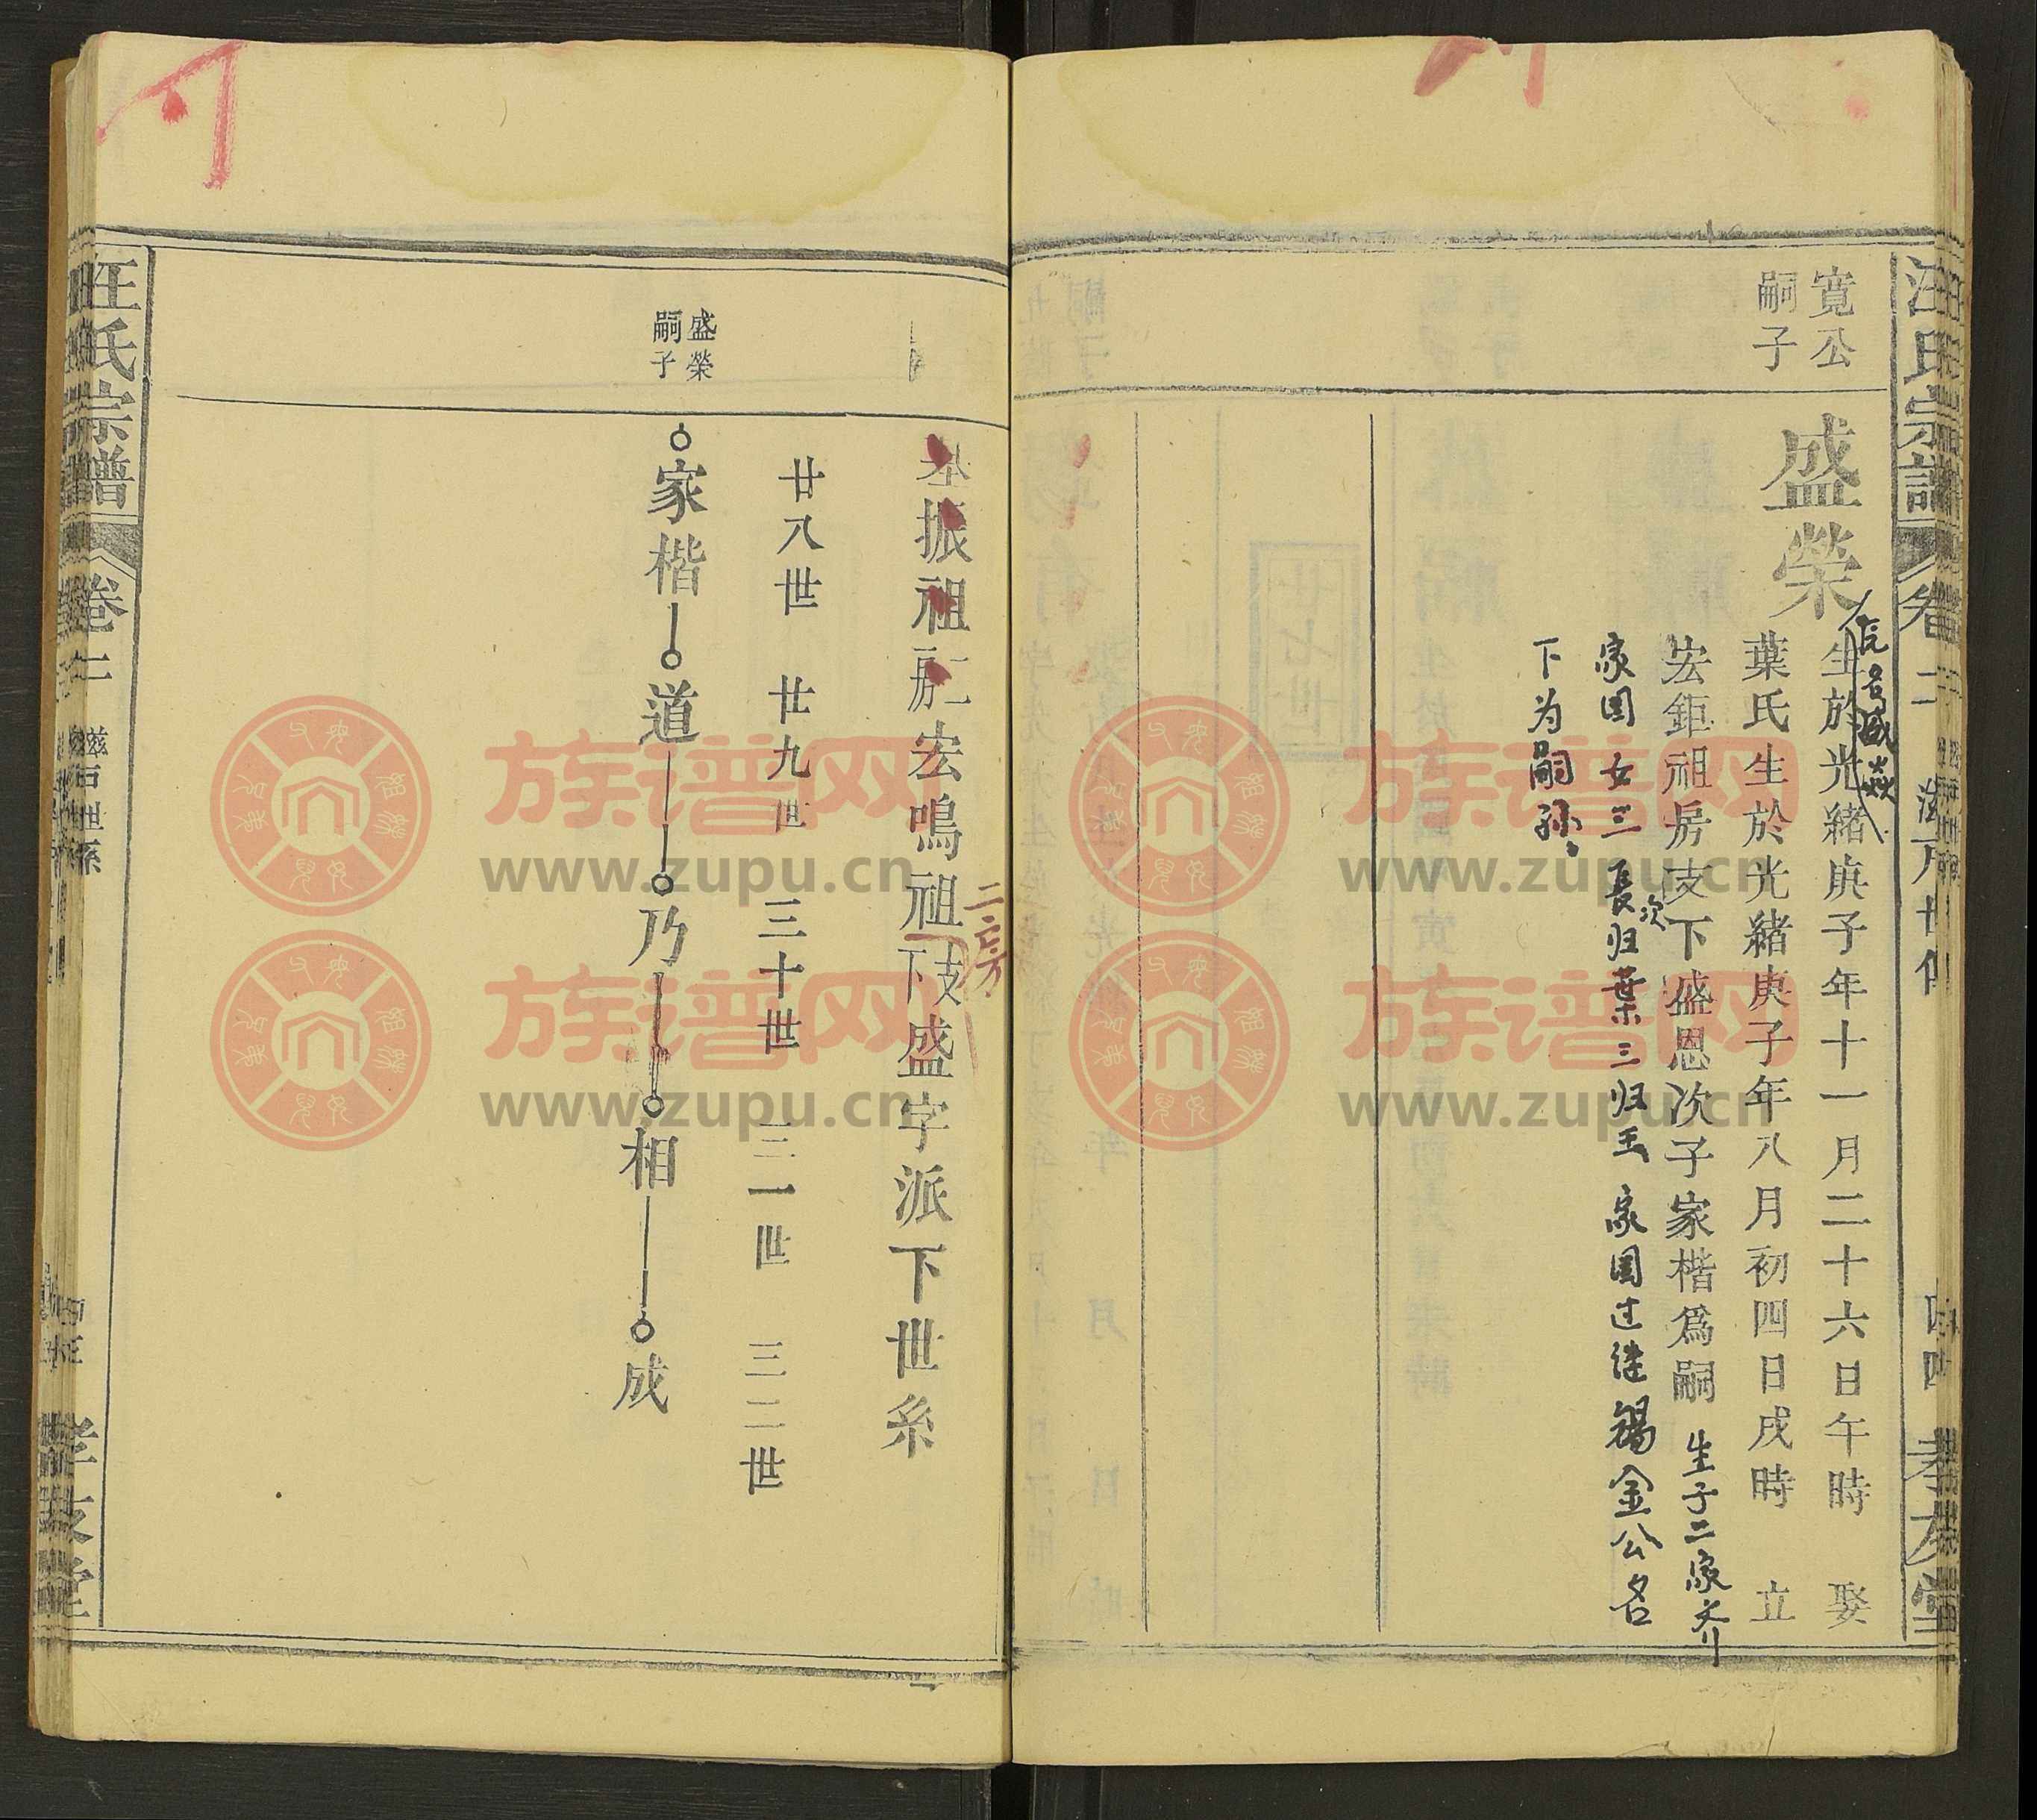 汪氏宗譜
卷二
四四
孝友堂
寬公
嗣子
盛榮
名盛焱
生於光緒庚子年十一月二十六日午時 娶
葉氏生於光緒庚子年八月初四日戌時 立
宏鉅祖房支下盛恩次子家楷爲嗣 生子二家齐
家国女三長次归葉三归王 家国过继锡金公名
下为嗣孙
振祖 宏鳴祖支下盛字派下世系
二房
廿八世 廿九世 三十世 三一世 三二世
盛榮
嗣子
家楷 道 乃 相 成
汪氏宗譜
卷二
世系
孝友堂
族谱网
www.zupu.cn
族谱网
www.zupu.cn
族谱网
www.zupu.cn
族谱网
www.zupu.cn